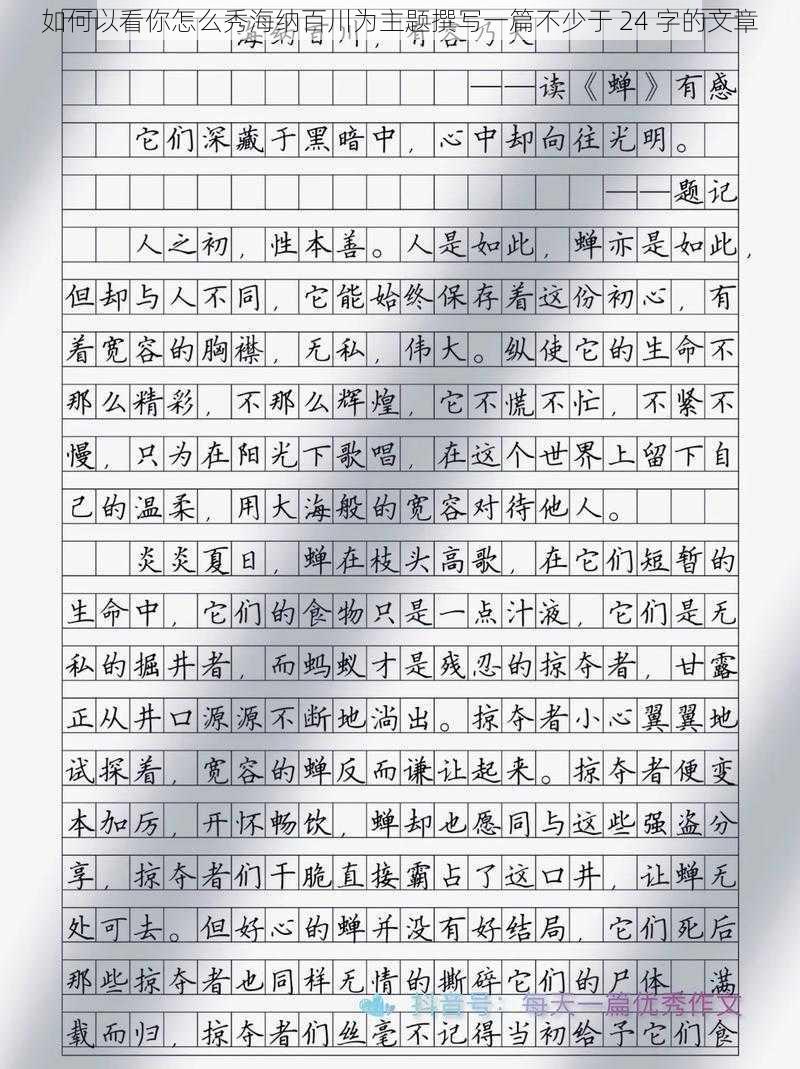 如何以看你怎么秀海纳百川为主题撰写一篇不少于 24 字的文章
海纳百川，有容乃大
——读《蝉》有感
它们深藏于黑暗中，心中却向往光明。
——题记
人之初，性本善。人是如此，蝉亦是如此，
但却与人不同，它能始终保存着这份初心，有
着宽容的胸襟，无私，伟大。纵使它的生命不
那么精彩，不那么辉煌，它不慌不忙，不紧不
慢，只为在阳光下歌唱，在这个世界上留下自
己的温柔，用大海般的宽容对待他人。
炎炎夏日，蝉在枝头高歌，在它们短暂的
生命中，它们的食物只是一点汁液，它们是无
私的掘井者，而蚂蚁才是残忍的掠夺者，甘露
正从井口源源不断地淌出。掠夺者小心翼翼地
试探着，宽容的蝉反而谦让起来。掠夺者便变
本加厉，开怀畅饮，蝉却也愿同与这些强盗分
享，掠夺者们干脆直接霸占了这口井，让蝉无
处可去。但好心的蝉并没有好结局，它们死后
那些掠夺者也同样无情的撕碎它们的尸体 满
抖音号：每天一篇优秀作文
载而归，掠夺者们丝毫不记得当初给予它们食